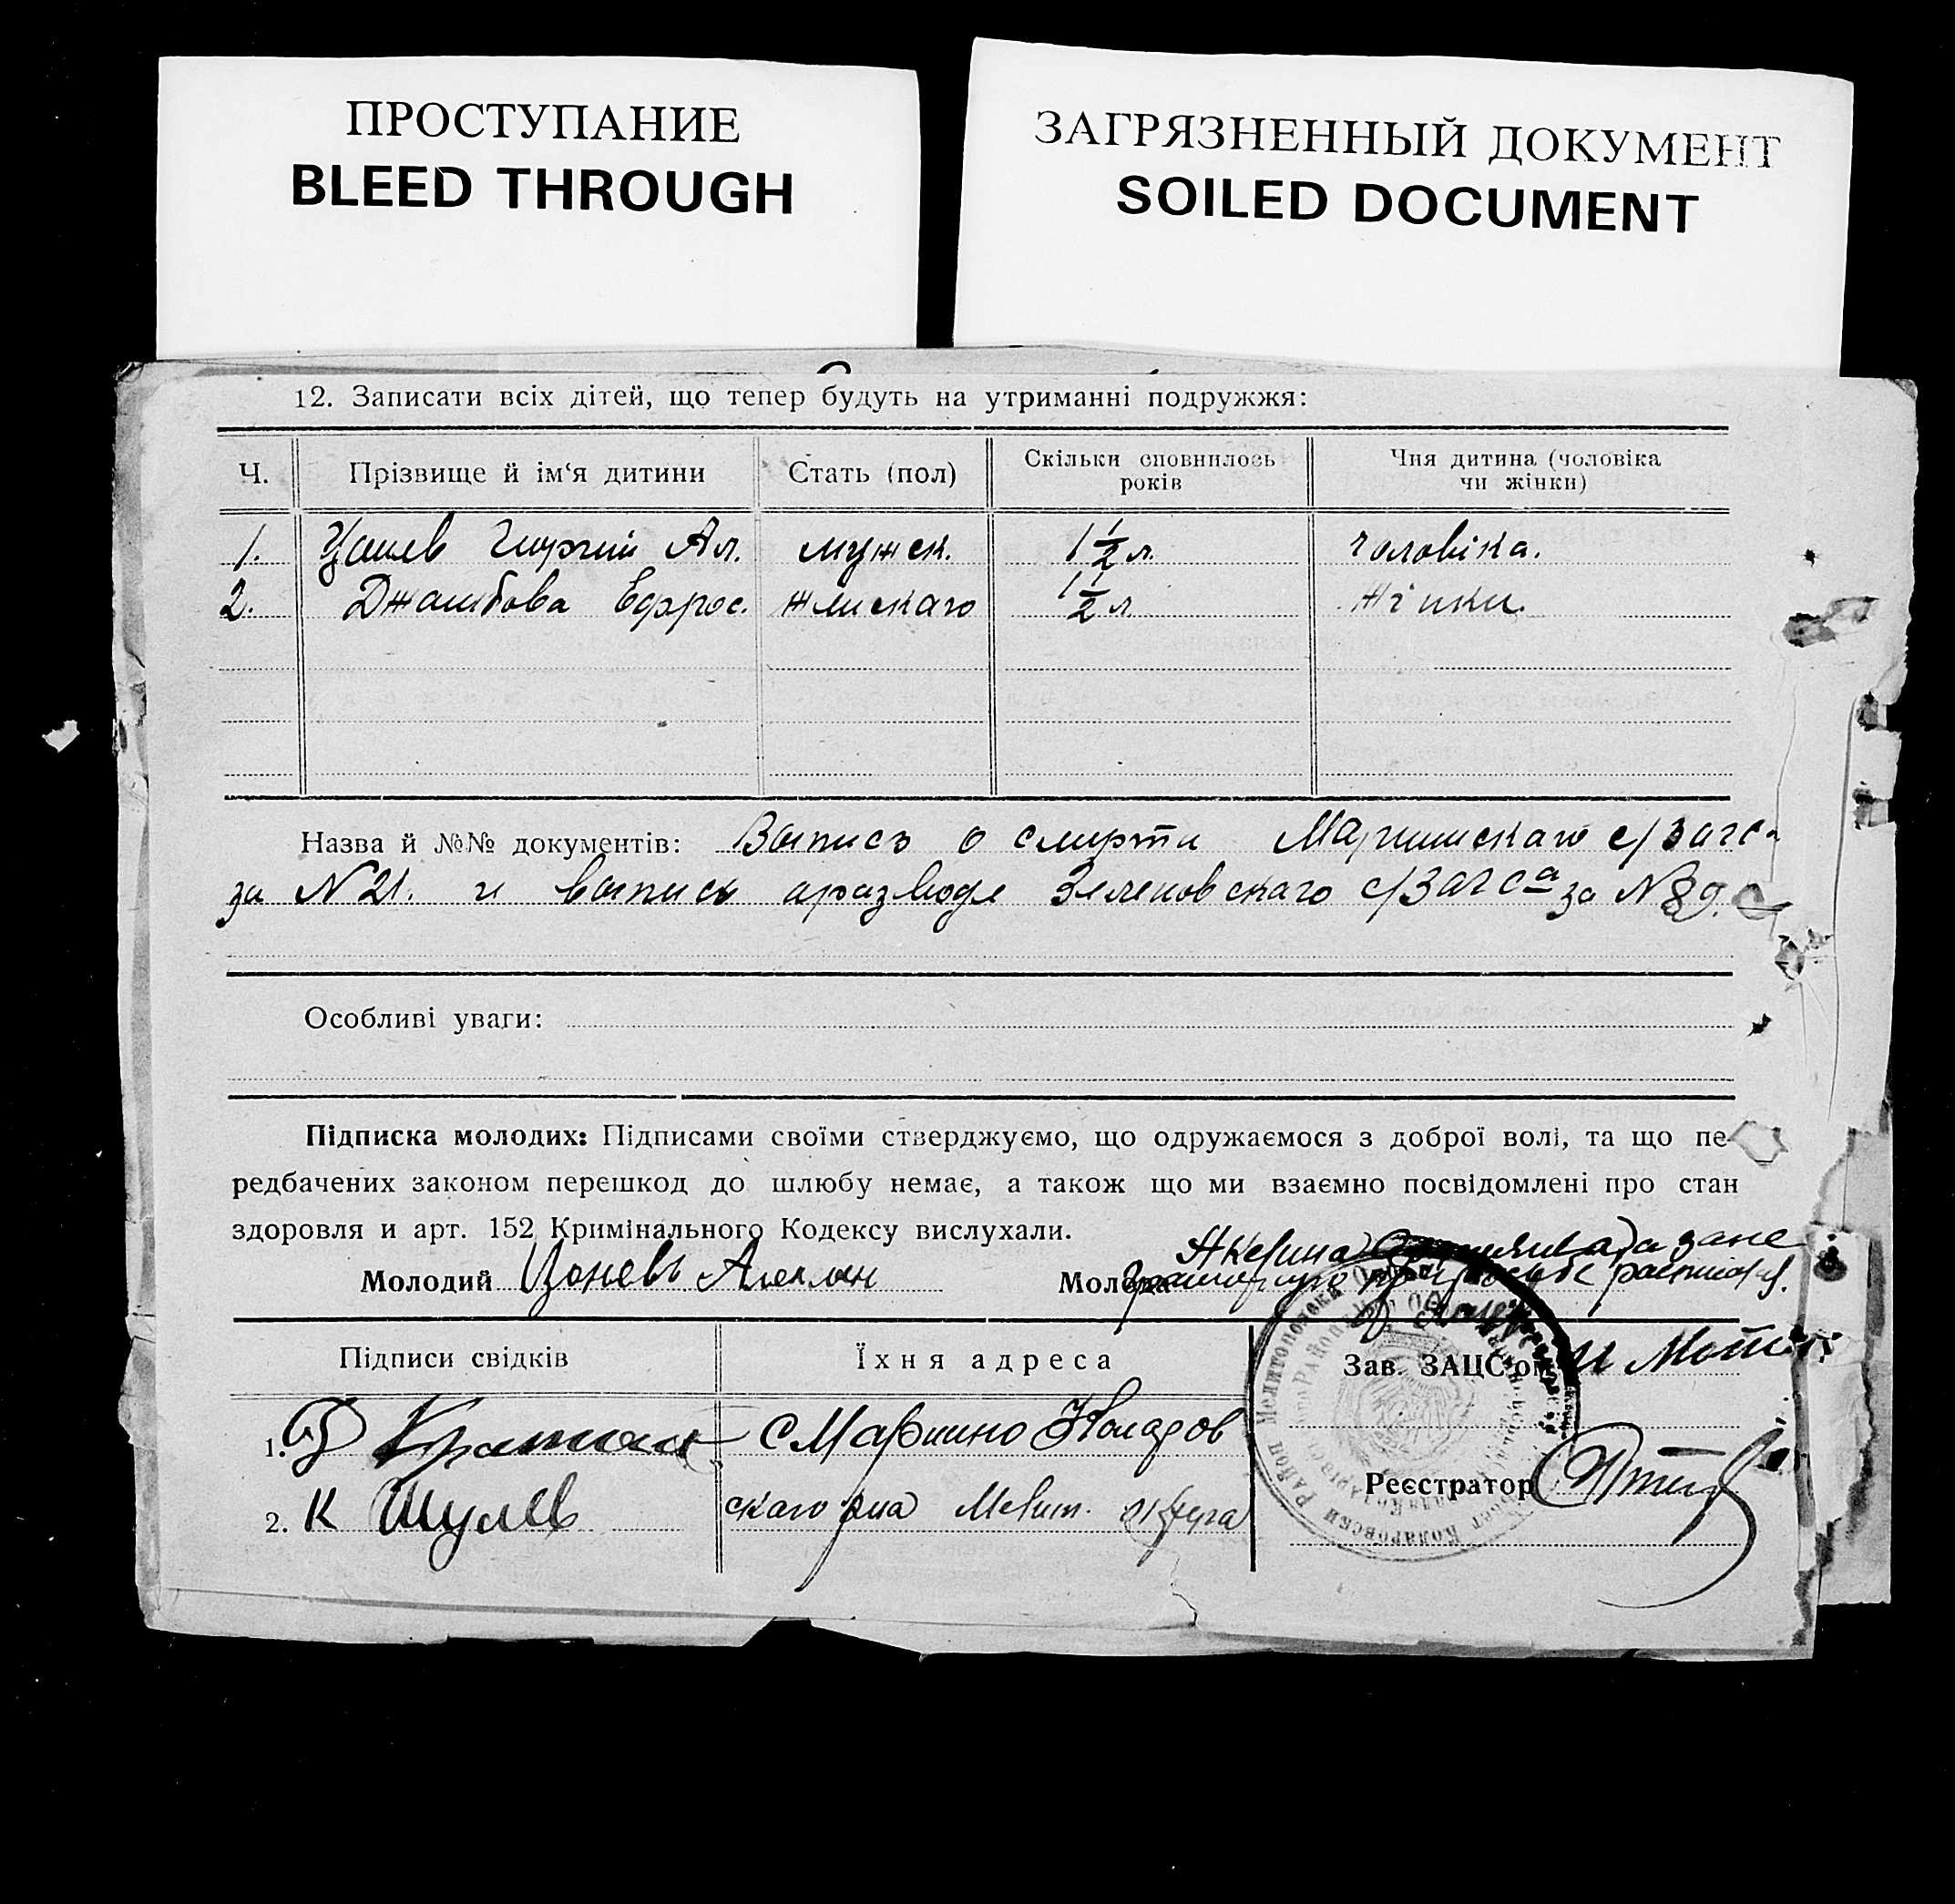 ПРОСТУПАНИЕ
BLEED THROUGH
ЗАГРЯЗНЕННЫЙ ДОКУМЕНТ
SOILED DOCUMENT
12. Записати всіх дітей, що тепер будуть на утриманні подружжя:
Ч. Прізвище й ім‘я дитини Стать (пол) Скільки сповнилось років Чия дитина (чоловіка чи жінки)
1. Ал. мужск. 1 1/2 л. чоловіка.
2. Ефрос. женскаго 1 1/2 л жінки.
Назва й №№ документів: Выпись о смерти Мариинскаго с/загса
за N 21. и выпись о разводе Зеленовскаго с/загса за N 89.
Особливі уваги:
Підписка молодих: Підписами своїми стверджуємо, що одружаємося з доброї волі, та що пе-
редбачених законом перешкод до шлюбу немає, а також що ми взаємно посвідомлені про стан
здоровля и арт. 152 Кримінального Кодексу вислухали.
Молодий Цоневъ
Молода за не
Підписи свідків Їхня адреса Зав. ЗАЦС'ом
1. С Марьино Коларов
2. К Шулев скаго р-на Мелит. округа
Реєстратор